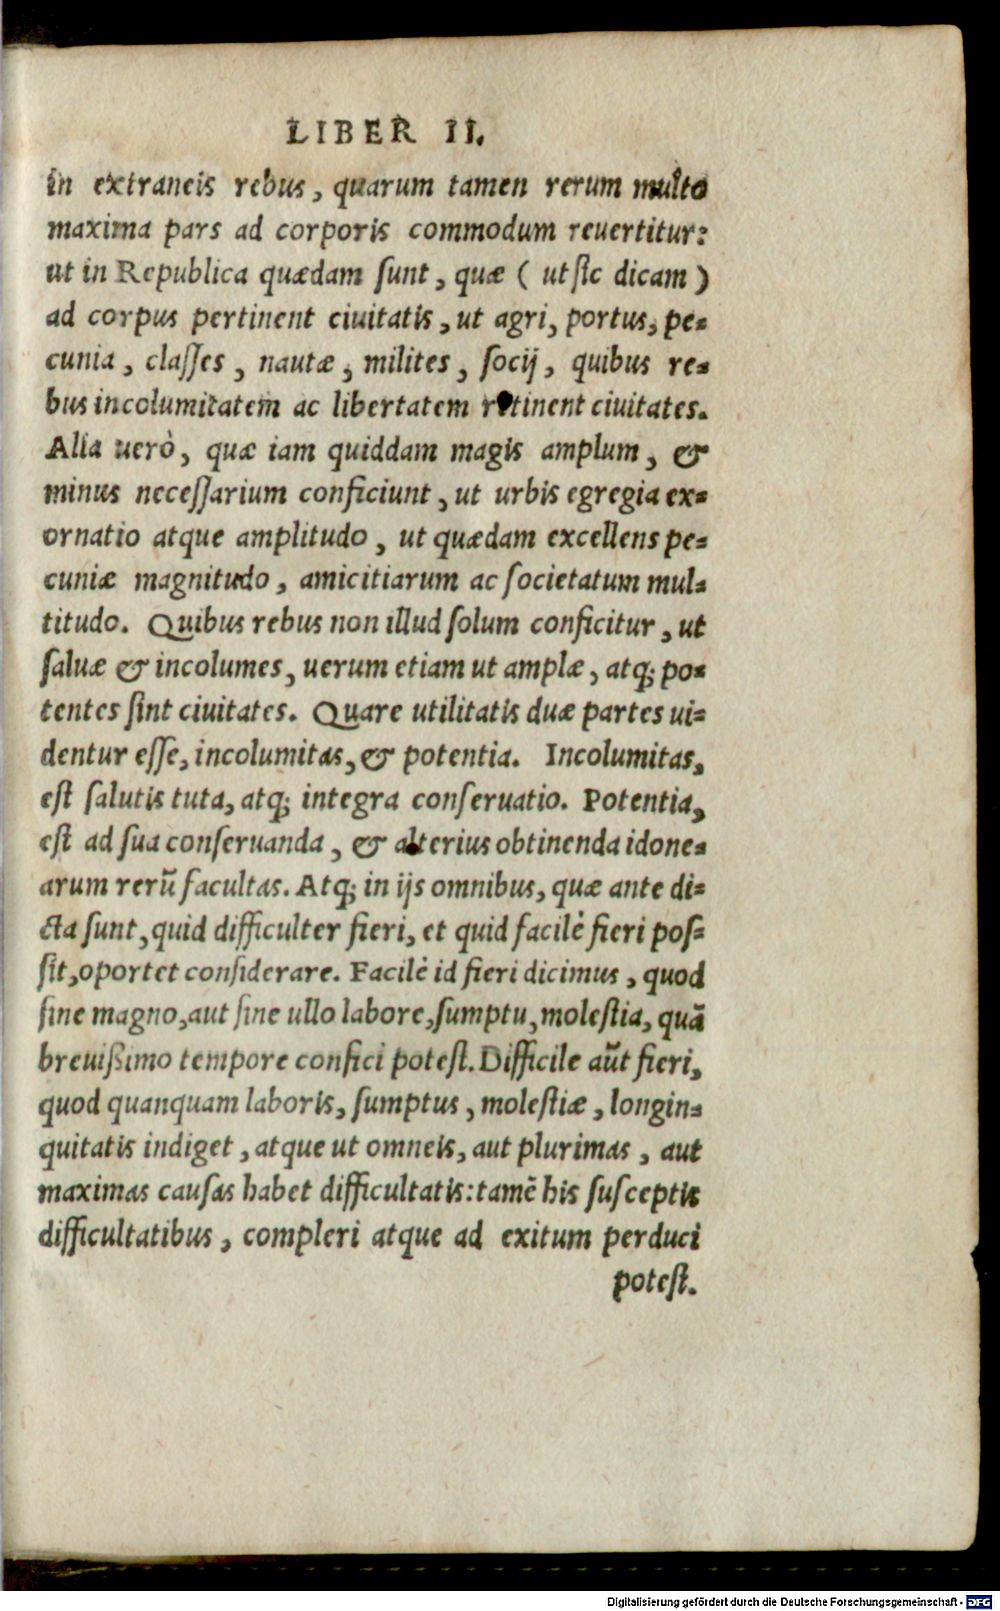 LIBER II.
in extraneis rebus, quarum tamen rerum multo
maxima pars ad corporis commodum reuertitur:
ut in Republica quædam sunt, quæ (ut sic dicam)
ad corpus pertinent ciuitatis, ut agri, portus, pe-
cunia, classes, nautæ, milites, socij, quibus re-
bus incolumitatem ac libertatem retinent ciuitates.
Alia uerò, quæ iam quiddam magis amplum, &
minus necessarium conficiunt, ut urbis egregia ex-
ornatio atque amplitudo, ut quædam excellens pe-
cuniæ magnitudo, amicitiarum ac societatum mul-
titudo. Quibus rebus non illud solum conficitur, ut
saluæ & incolumes, uerum etiam ut amplæ, atq; po-
tentes sint ciuitates. Quare utilitatis duæ partes ui-
dentur esse, incolumitas, & potentia. Incolumitas,
est salutis tuta, atq; integra conseruatio. Potentia,
est ad sua conseruanda, & alterius obtinenda idone-
arum rerū facultas. Atq; in ijs omnibus, quæ ante di-
cta sunt, quid difficulter fieri, et quid facilè fieri pos-
sit, oportet considerare. Facilè id fieri dicimus, quod
sine magno, aut sine ullo labore, sumptu, molestia, quā
breuißimo tempore confici potest. Difficile aūt fieri,
quod quanquam laboris, sumptus, molestiæ, longin-
quitatis indiget, atque ut omneis, aut plurimas, aut
maximas causas habet difficultatis: tamē his susceptis
difficultatibus, compleri atque ad exitum perduci
potest.
Digitalisierung gefördert durch die Deutsche Forschungsgemeinschaft - DFG